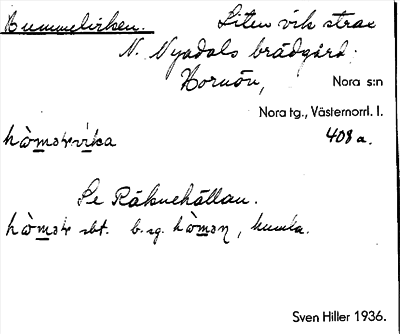 Hummelviken. Liten vik strax
N. Nyadals brädgård.
Hornön, Nora s:n
Nora tg., Västernorrl. l.
hòməɫvika 408 a.
Se Räknehällan.
hòməɫ sbt. b. sg. hòmən, humla.
Sven Hiller 1936.